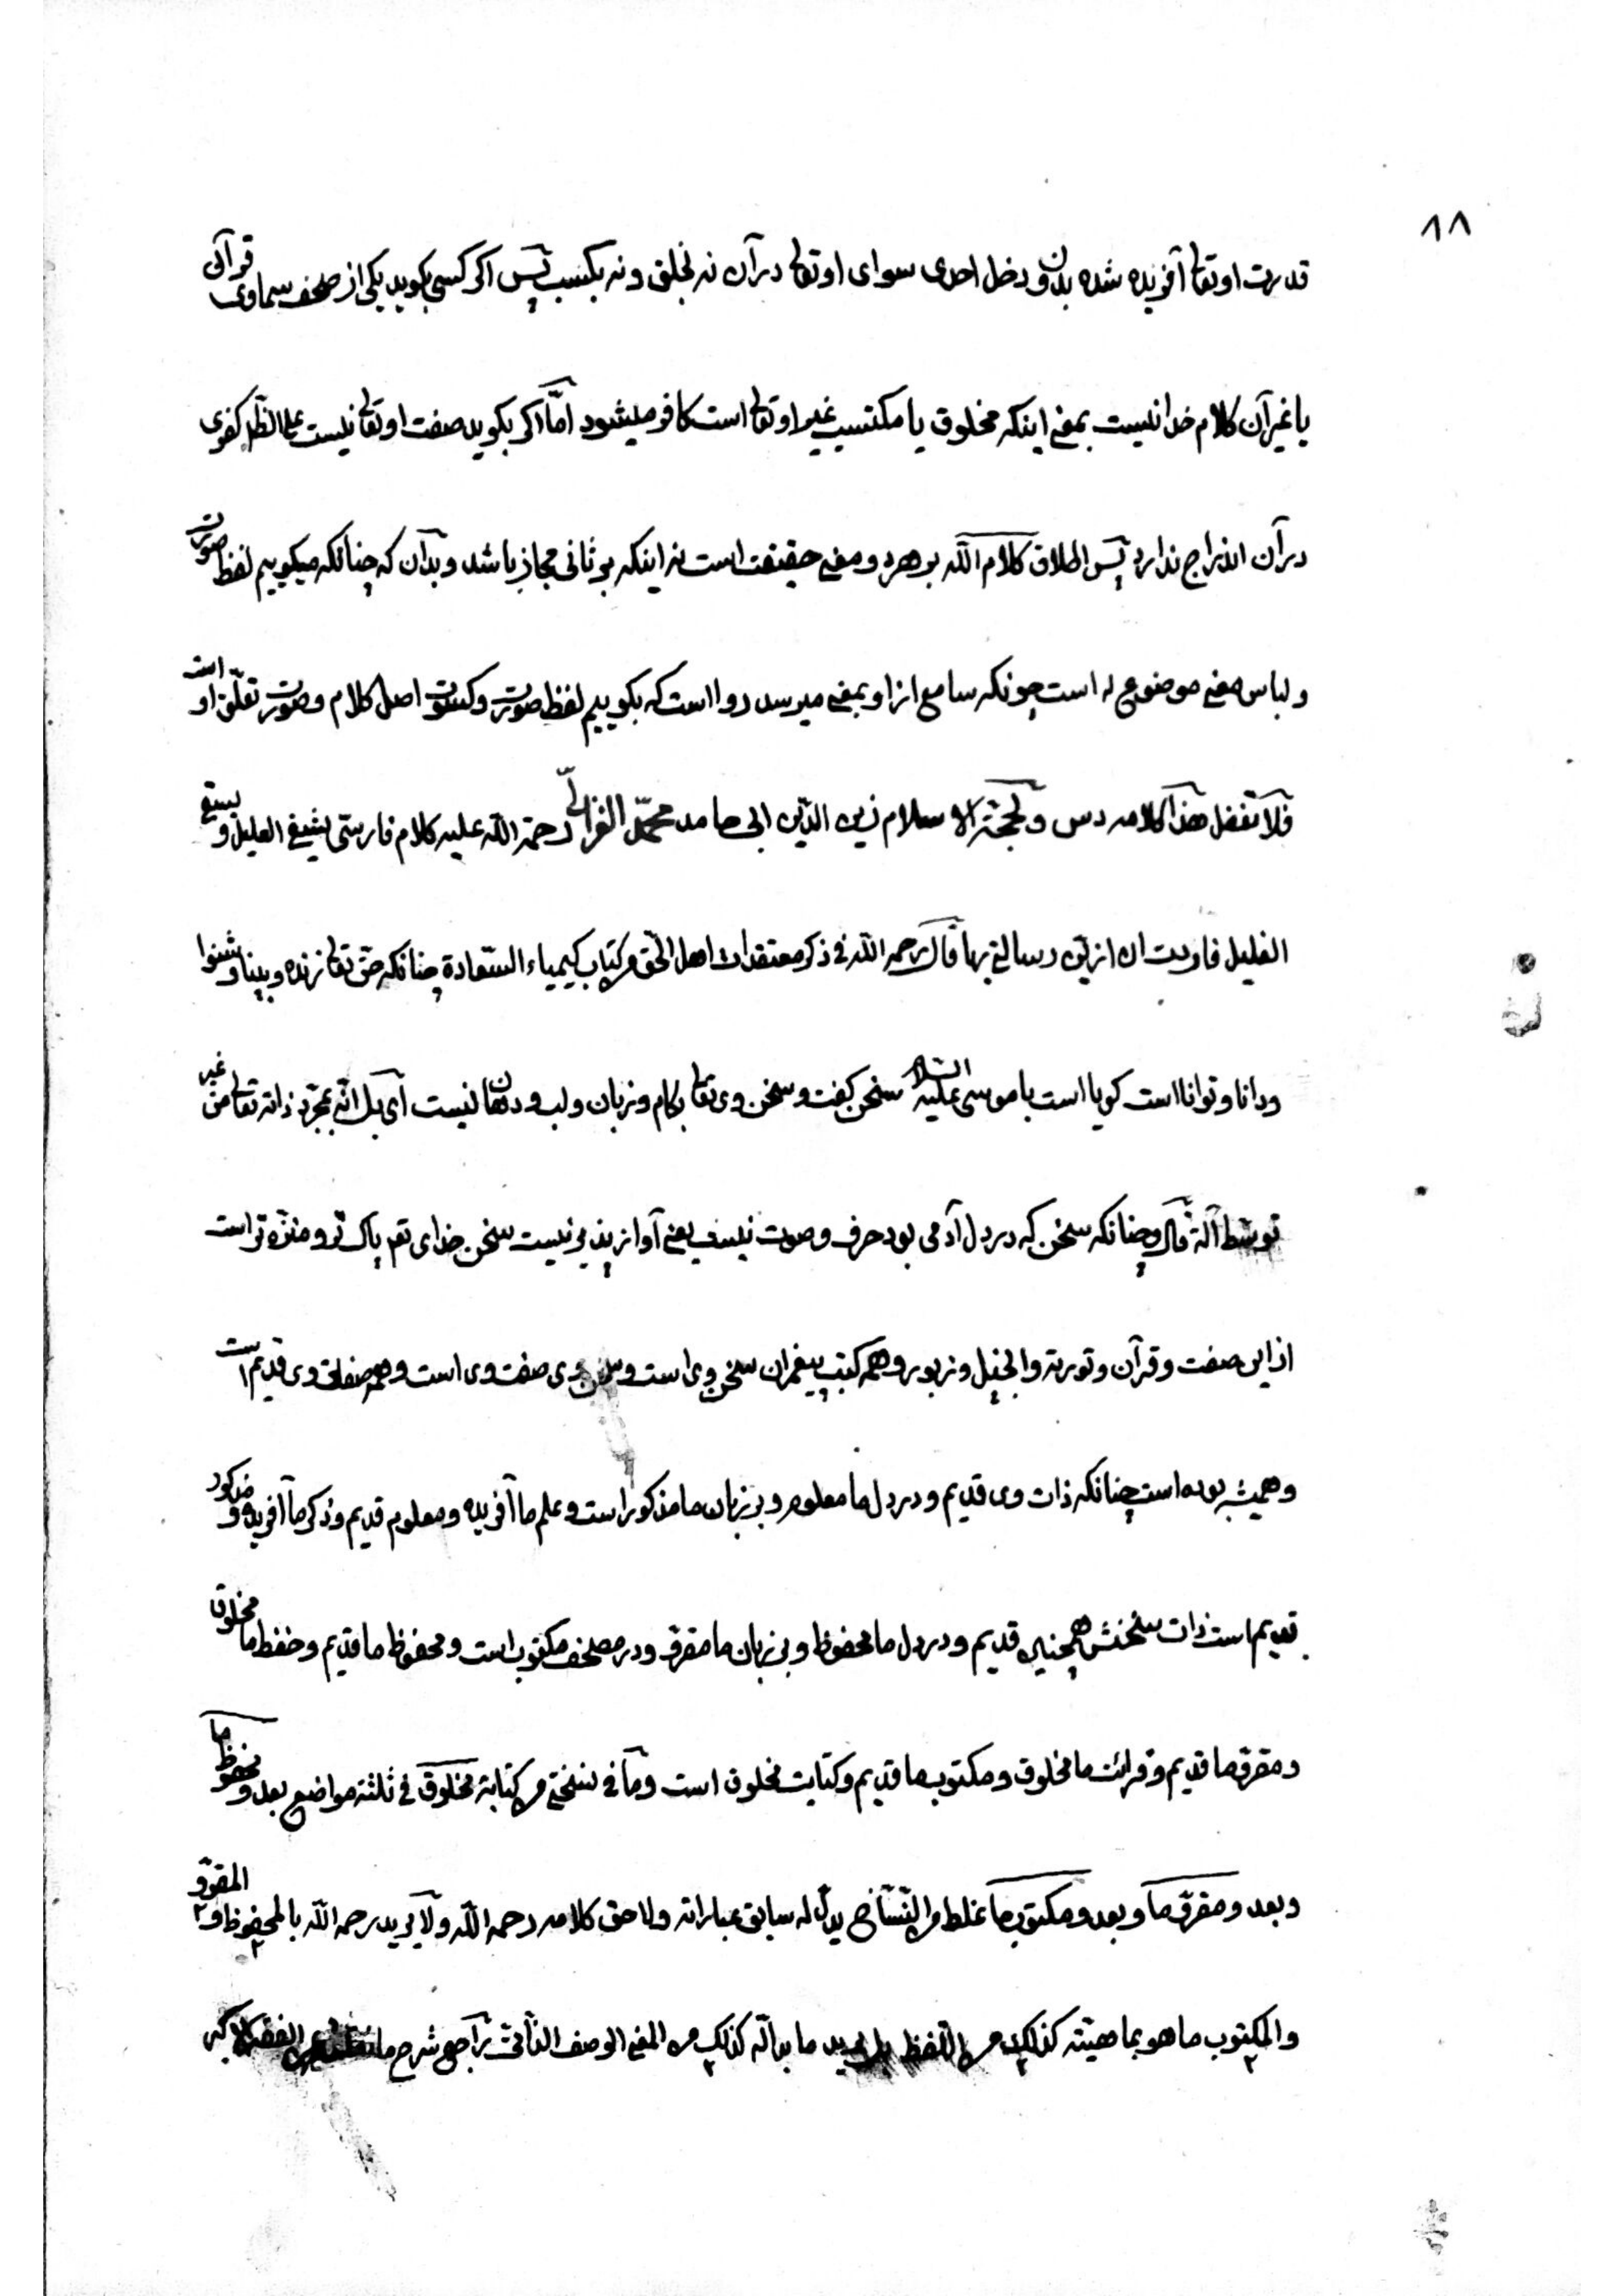 ١٨
قدرت اوتعا آفریده شده بدون دخل احدی سوای اوتعا در آن نه بخلق و نه بکسب پس اکر کسی بکوید یکی از صحف سماوی قرآن
یا غیر آن کلام خدا نیست بمعنی اینکه مخلوق یا مکتسب غیر اوتعا است کافر میشود امّا اکر بکوید صفت اوتعا نیست علی الظاهر کفری
در آن اندراج ندارد پس اطلاق کلام الله بر هر دو معنی حقیقت است نه اینکه بر ثانی مجاز باشد و بدان که چنانکه میکوییم لفظ صورت
و لباس معنی موضوع له است چونکه سامع از او بمعنی میرسد روا است که بکوییم لفظ صورت و کسوت اصل کلام و صورت تعلّق او است
فلا تغفل هذا کلامه دس و لحجّة الاسلام زین الدّین ابی حامد محمّد الغزالیّ رحمة الله علیه کلام فارسیّ یشفی العلیل و یسقی
الغلیل فاردت ان ازیّن رسالتی بها قال رحمه الله فی ذکر معتقدات اهل الحّق من کتاب کیمیاء السّعادة چنانکه حقّ تعا زنده و بینا و شنوا
و دانا و توانا است کویا است با موسی علیه السّلام سخن کفت و سخن وی تعا بکام و زبان و لب و دهان نیست ای بل انّه بمجرّد ذاته تعا من غیر
توسّط آلة قال و چنانکه سخن که در دل آدمی بود حرف و صوت نیست یعنی آواز پذیر نیست سخن خدای تعم پاک تر و منزّه تر است
از این صفت و قرآن و توریة و انجیل و زبور و همه کتب پیغمران سخن وی است و سخن وی صفت وی است و همه صفات وی قدیم است
و همیشه بوده است چنانکه ذات وی قدیم و در دل ما معلوم و بر زبان ما مذکور است و علم ما آفریده و معلوم قدیم و ذکر ما آفریده و مذکور
قدیم است ذات سخنش همچنین قدیم و در دل ما محفوظ و بر زبان ما مقروّ و در مصحف مکتوب است و محفوظ ما قدیم و حفظ ما مخلوق
و مقروّ ما قدیم و قرائت ما مخلوق و مکتوب ما قدیم و کتابت مخلوق است و ما فی نسختی من کتابة مخلوق فی ثلثة مواضع بعد و محفوظ ما
و بعد و مقروّ ما و بعد و مکتوب ما غلط من النّسّاخ یدلّ له سابق عباراته و لاحق کلامه رحمه الله و لا یرید رحمه الله بالمحفوظ و المقروّ
و المکتوب ما هو بماهیّته کذلک من اللّفظ بل یرید ما بدالّه کذلک من المعنی الوصف الذّاتیّ راجع شرح ما الفقه الاکبر